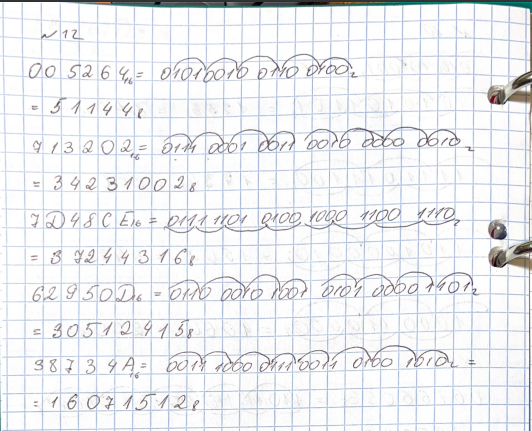 №12
005264₁₆ = 0101 0010 0110 0100₂
= 51144₈
713202₁₆ = 0111 0001 0011 0010 0000 0010₂
= 34231002₈
7D48CE₁₆ = 0111 1101 0100 1000 1100 1110₂
= 37244316₈
62950D₁₆ = 0110 0010 1001 0101 0000 1101₂
= 30512415₈
38734A₁₆ = 0011 1000 0111 0011 0100 1010₂ =
= 16071512₈